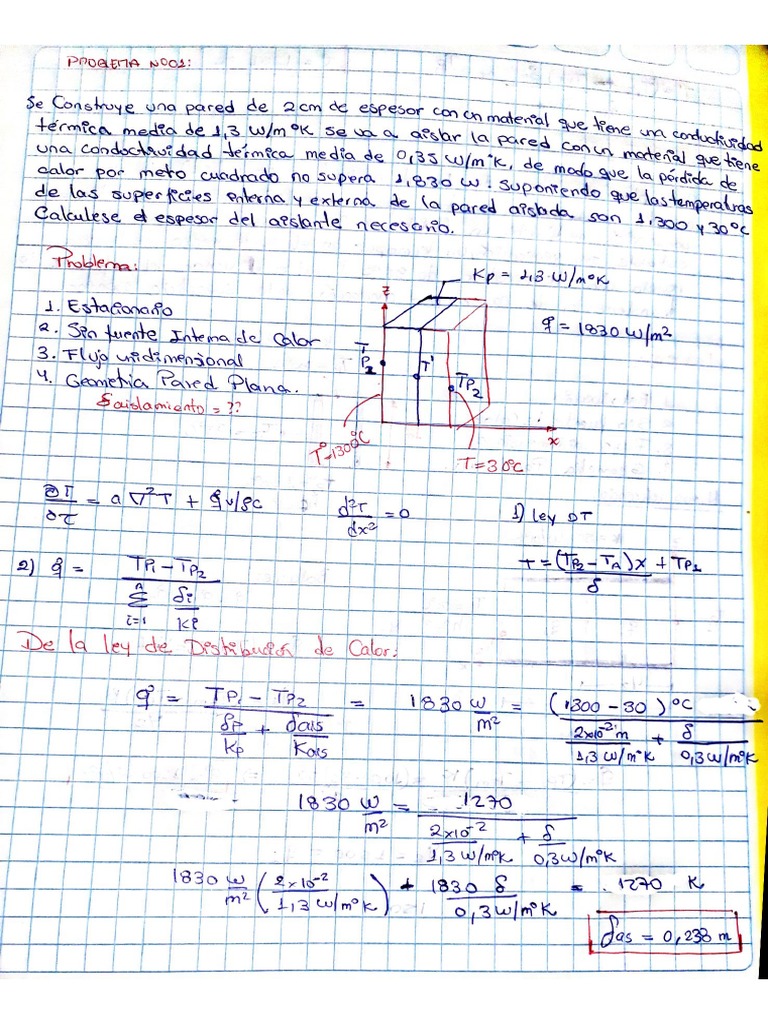 PROBLEMA N001:
Se Construye una pared de 2cm de espesor con un material que tiene una conductividad
térmica media de 1,3 W/m°K se va a aislar la pared con un material que tiene
una conductividad térmica media de 0,35 W/m°K, de modo que la pérdida de
calor por metro cuadrado no supera 1,830 W. suponiendo que las temperatures
de las superficies interna y externa de la pared aislada son 1,300 y 30°C
Calculese el espesor del aislante necesario.
Problema:
Kp = 1,3 W/m°K
1. Estacionario
2. Sin fuente Interna de Calor
3. Flujo unidimensional
4. Geometria Pared Plana.
δaislamiento = ??
q̇ = 1830 W/m²
z
TP2
T'
TP2
x
T=1300°C
T=30°C
∂T/∂τ = a ∇²T + q̇v/ρc
d²T/dx² = 0
1) ley DT
2) q̇ = (TP1 - TP2) / (Σ i=1 n δi/Ki)
T = (TP2 - TA)x/δ + TP1
De la ley de Distribución de Calor:
q° = (TP1 - TP2) / (δp/Kp + δais/Kais) = 1830 W/m² = (1300 - 30)°C / (2x10⁻²m/1,3 W/m°K + δ/0,3W/m°K)
1830 W/m² = 1270 / (2x10⁻²/1,3 W/m°K + δ/0,3W/m°K)
1830 W/m² (2x10⁻²/1,3 W/m°K) + 1830 δ/0,3W/m°K = 1270 K
δas = 0,238 m